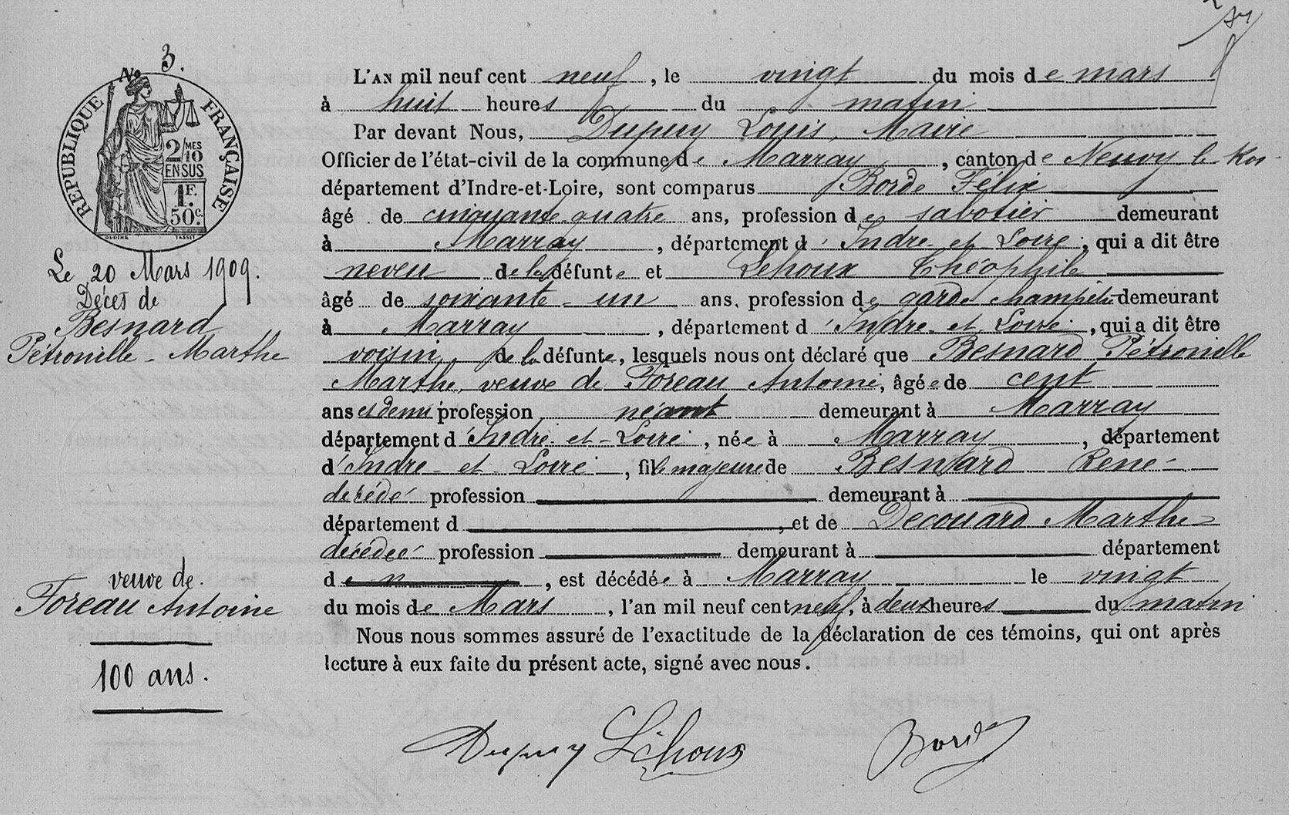 No 3.
RÉPUBLIQUE FRANÇAISE
2/10 MES
EN SUS
1 F.
50 c.
OUDINÉ TASSET
Le 20 Mars 1909.
Décès de
Besnard
Pétronille-Marthe
veuve de.
Foreau Antoine
100 ans.
L'AN mil neuf cent neuf, le vingt du mois de mars
à huit heures du matin
Par devant Nous, Dupuy Louis, Maire
Officier de l'état-civil de la commune de Marray, canton de Neuvy le Roi
département d'Indre-et-Loire, sont comparus Borde Félix
âgé de cinquante quatre ans, profession de sabotier demeurant
à Marray, département d'Indre-et-Loire, qui a dit être
neveu de la défunte et Lehoux Théophile
âgé de soixante-un ans, profession de garde champêtre demeurant
à Marray, département d'Indre-et-Loire, qui a dit être
voisin, de la défunte, lesquels nous ont déclaré que Besnard Pétronille
Marthe, veuve de Foreau Antoine, âgée de cent
ans et demi profession néant demeurant à Marray
département d'Indre-et-Loire, née à Marray, département
d'Indre-et-Loire, fille majeure de Besnard René
décédé profession demeurant à
département d , et de Decouard Marthe
décédée profession demeurant à département
d , est décédée à Marray le vingt
du mois de Mars, l'an mil neuf cent neuf, à deux heures du matin
Nous nous sommes assuré de l'exactitude de la déclaration de ces témoins, qui ont après
lecture à eux faite du présent acte, signé avec nous.
Dupuy Lehoux Borde